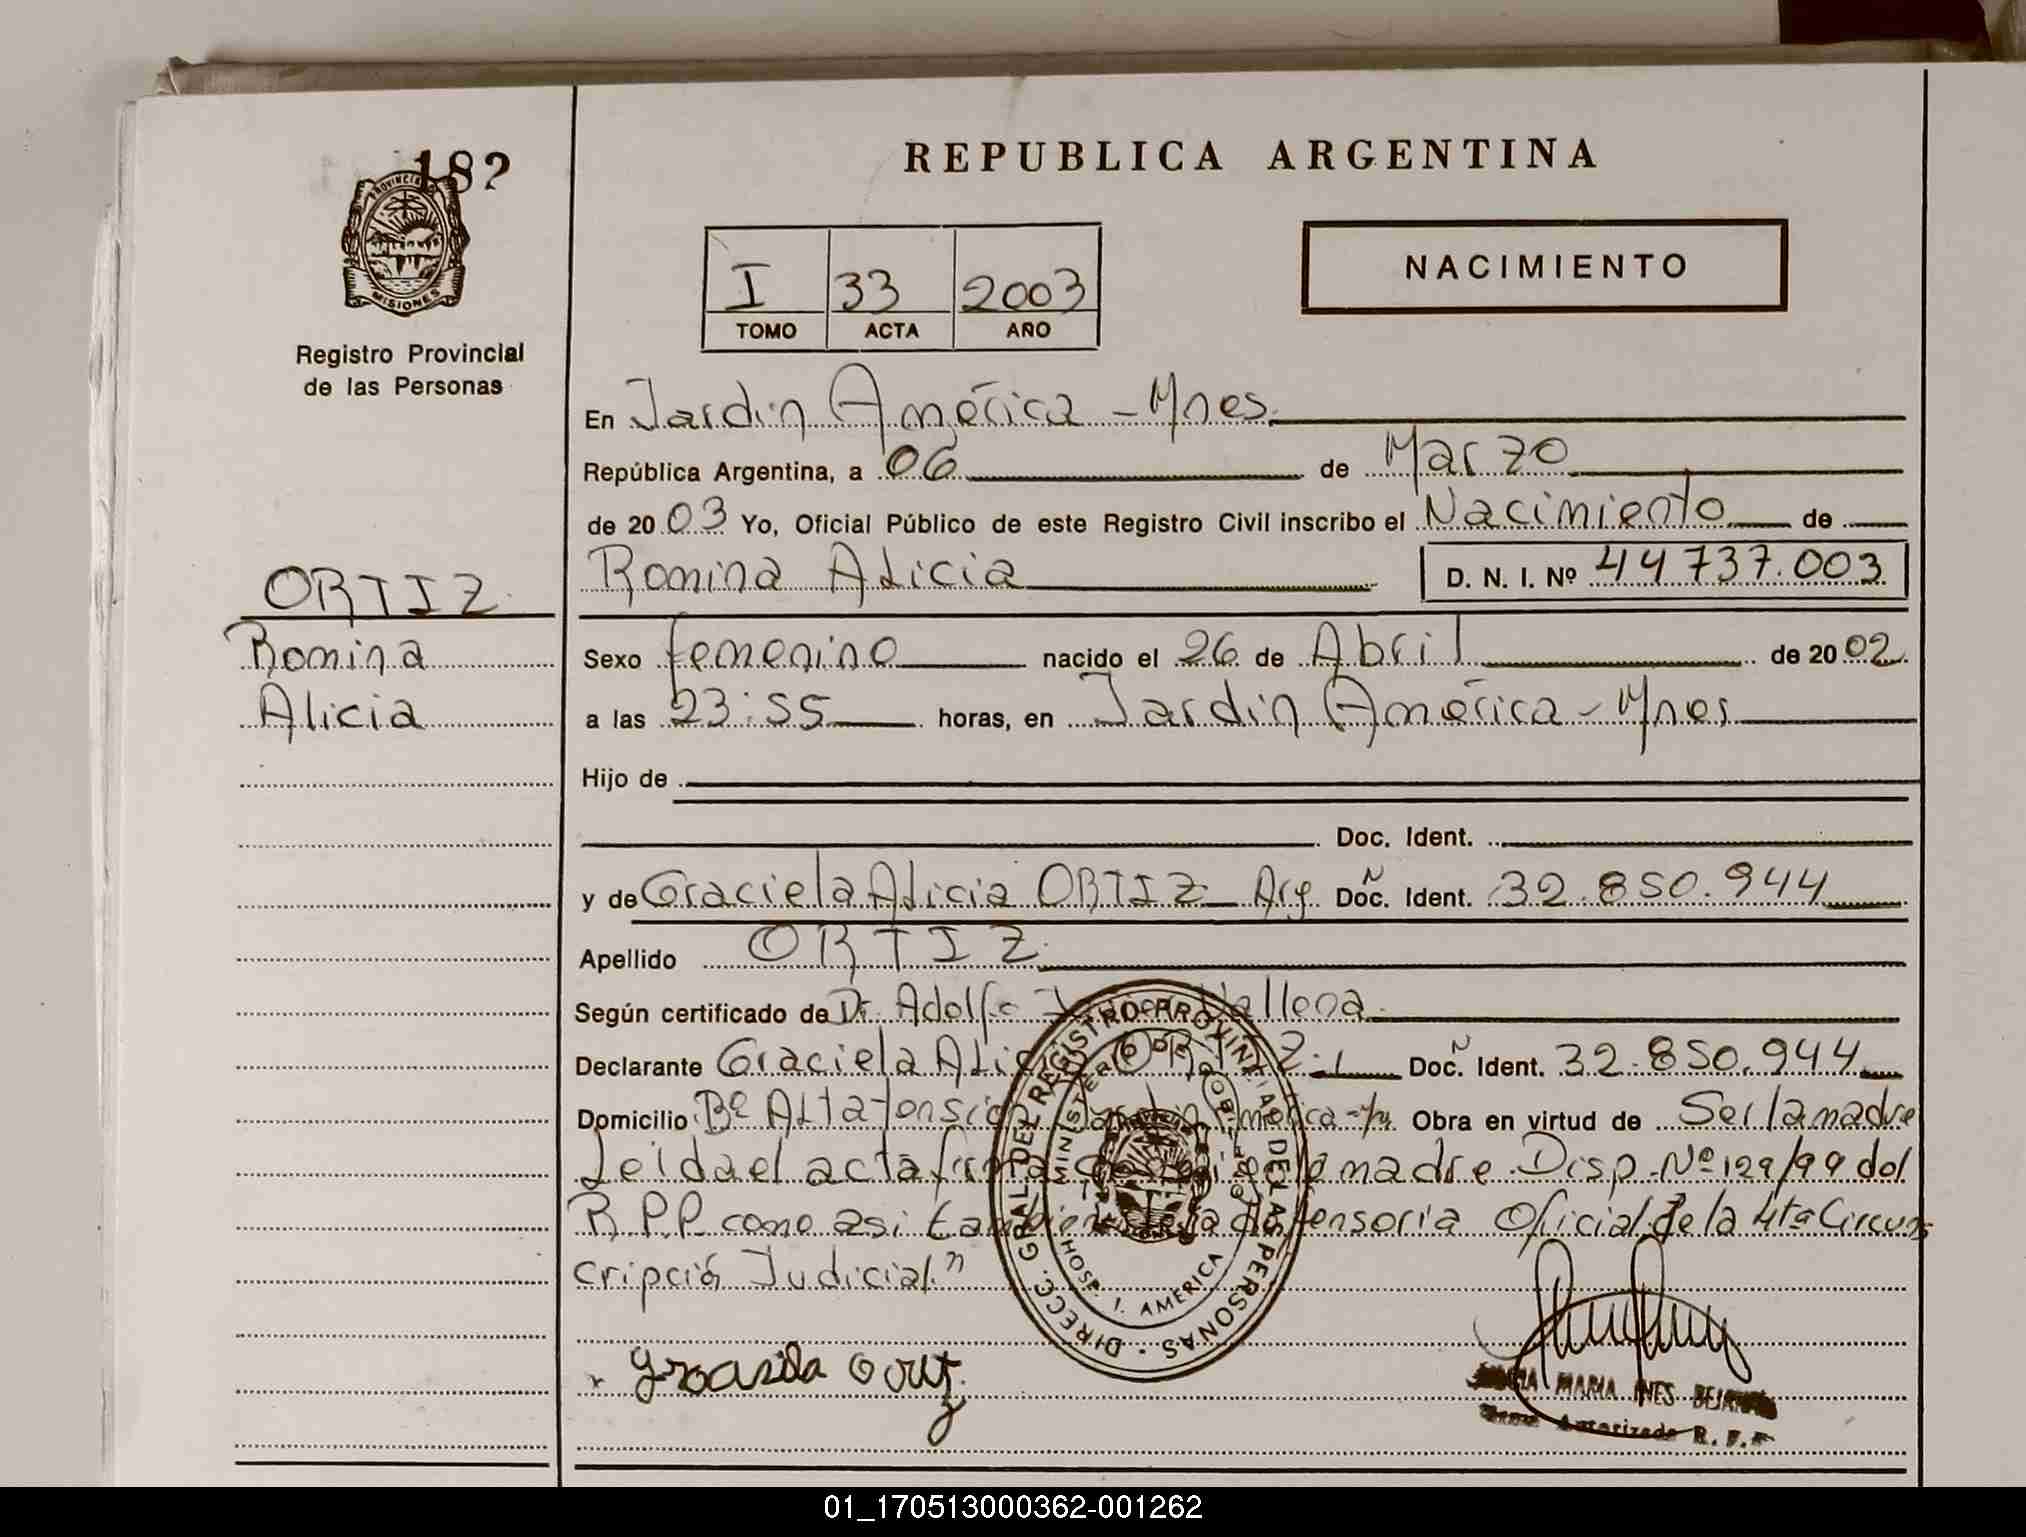 182
PROVINCIA
MISIONES
Registro Provincial
de las Personas
ORTIZ
Romina
Alicia
REPUBLICA ARGENTINA
I 33 2003
TOMO ACTA AÑO
NACIMIENTO
En Jardin América - Mnes.
República Argentina, a 06 de Marzo
de 2003 Yo, Oficial Público de este Registro Civil inscribo el Nacimiento de
Romina Alicia D. N. I. Nº 44737.003
Sexo femenino nacido el 26 de Abril de 2002
a las 23:55 horas, en Jardin América - Mnes
Hijo de
Doc. Ident.
y de Graciela Alicia ORTIZ Arg Doc. Ident. 32.850.944
Apellido ORTIZ
Según certificado de Dr. Adolfo
Declarante Graciela Alicia ORTIZ Doc. Ident. 32.850.944
Domicilio Bº Alta tensión Jardin América Obra en virtud de Ser la madre
Leida el acta firma la madre Disp. Nº 129/99 del
R.P.P. como asi tambien defensoria Oficial de la 4ta Circuns
cripción Judicial"
DIRECC. GRAL. DEL REGISTRO PROVINCIAL DE LAS PERSONAS
MINISTERIO DE GOBIERNO
HOSP. J. AMERICA
MARIA INES
Autorizado R. P. P.
01_170513000362-001262